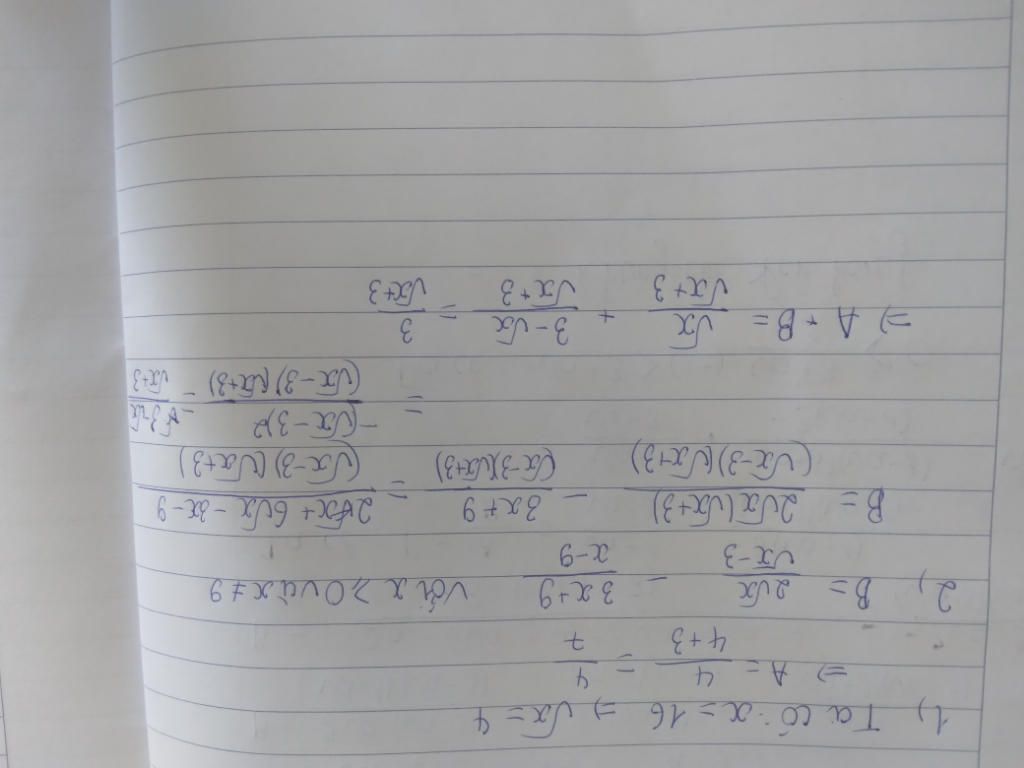 1, Ta có: x = 16 ⇒ √x = 4
⇒ A = 4/(4+3) = 4/7
2, B = 2√x/(√x-3) - (3x+9)/(x-9) với x ≥ 0 và x ≠ 9
B = 2√x(√x+3)/((√x-3)(√x+3)) - (3x+9)/((√x-3)(√x+3)) = (2x + 6√x - 3x - 9)/((√x-3)(√x+3))
= -(√x-3)²/((√x-3)(√x+3)) = (3-√x)/(√x+3)
⇒ A + B = √x/(√x+3) + (3-√x)/(√x+3) = 3/(√x+3)